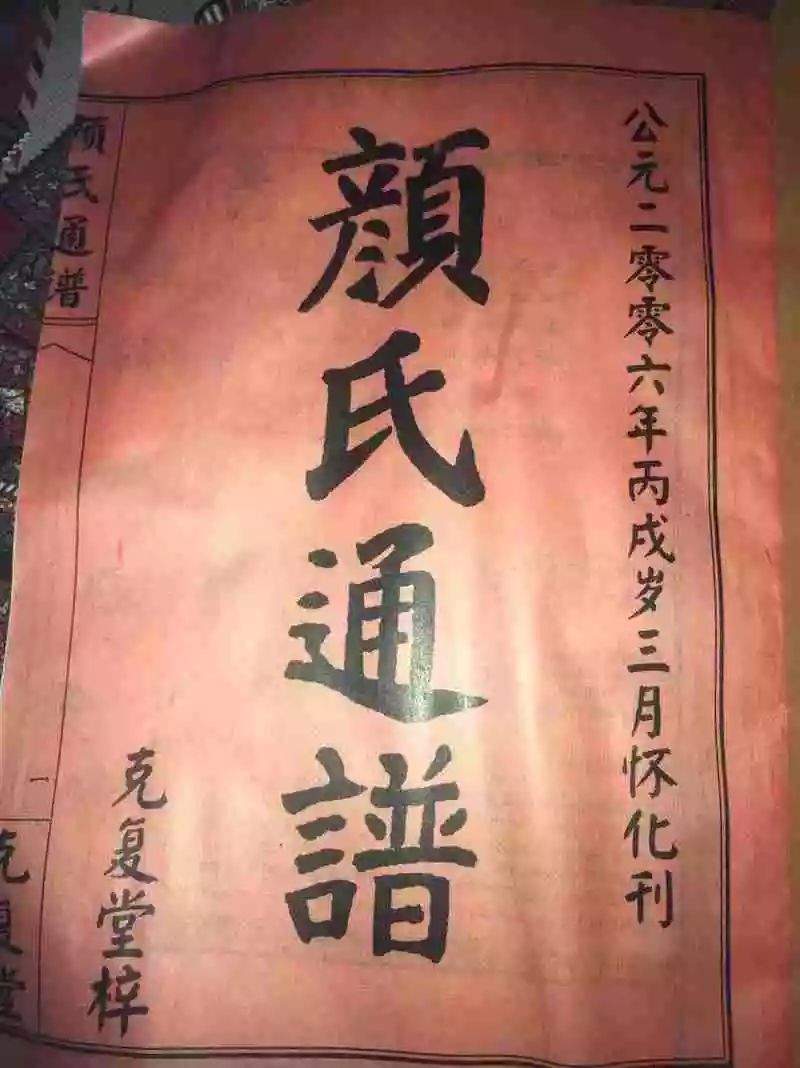 公元二零零六年丙戌岁三月怀化刊
顏氏通譜
克复堂梓
颜氏通谱
一
克复堂